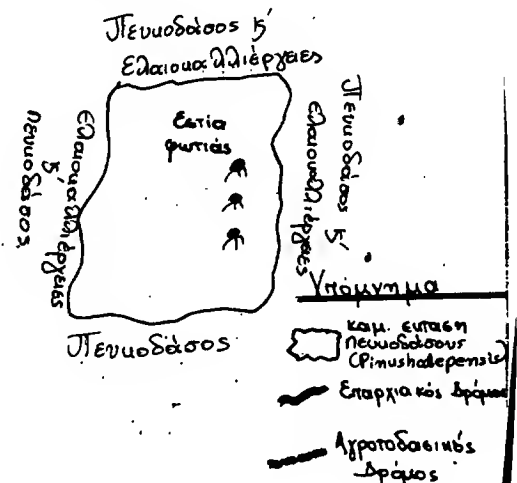 Πευκοδάσος κ'
Ελαιοκαλλιέργειες
Εστία
φωτιάς
Πευκοδάσος κ'
Ελαιοκαλλιέργειες
Πευκοδάσος
κ'
Ελαιοκαλλιέργειες
Πευκοδάσος
Υπόμνημα
καμ. έκταση
πευκοδάσους
(Pinus halepensis)
Επαρχιακός Δρόμος
Αγροτοδασικός
Δρόμος